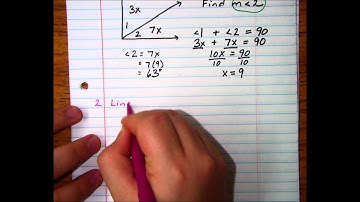 Find m<2
3x
1
2
7x
<1 + <2 = 90
3x + 7x = 90
10x = 90
10 10
x = 9
<2 = 7x
= 7(9)
= 63°
2 Lin